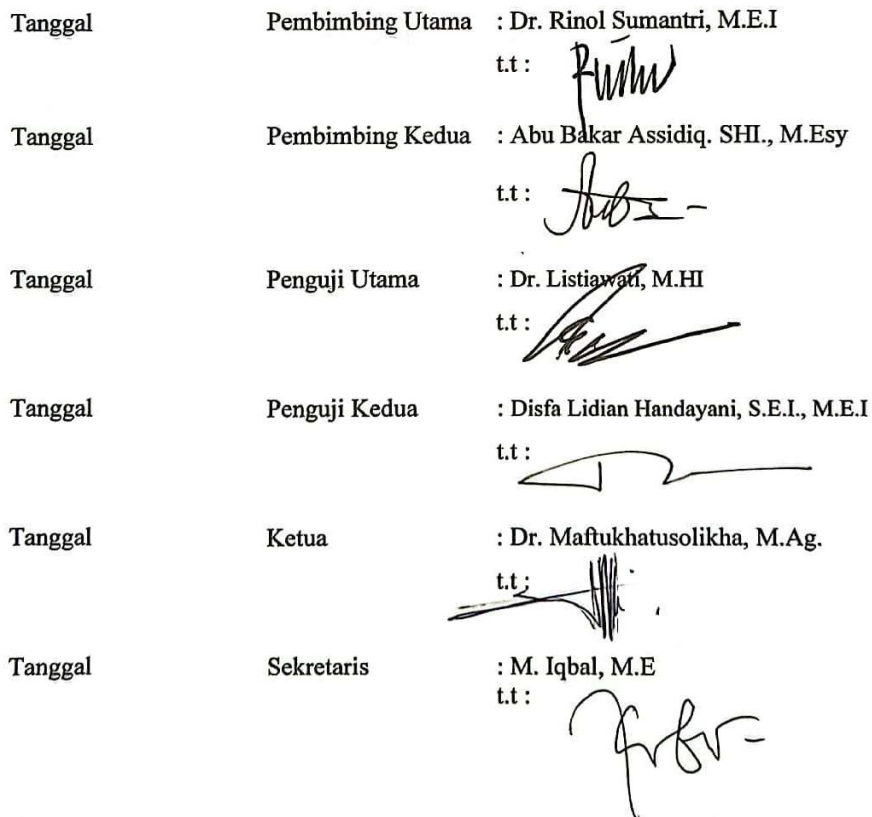 Tanggal Pembimbing Utama : Dr. Rinol Sumantri, M.E.I
t.t :
Tanggal Pembimbing Kedua : Abu Bakar Assidiq. SHI., M.Esy
t.t :
Tanggal Penguji Utama : Dr. Listiawati, M.HI
t.t :
Tanggal Penguji Kedua : Disfa Lidian Handayani, S.E.I., M.E.I
t.t :
Tanggal Ketua : Dr. Maftukhatusolikha, M.Ag.
t.t :
Tanggal Sekretaris : M. Iqbal, M.E
t.t :